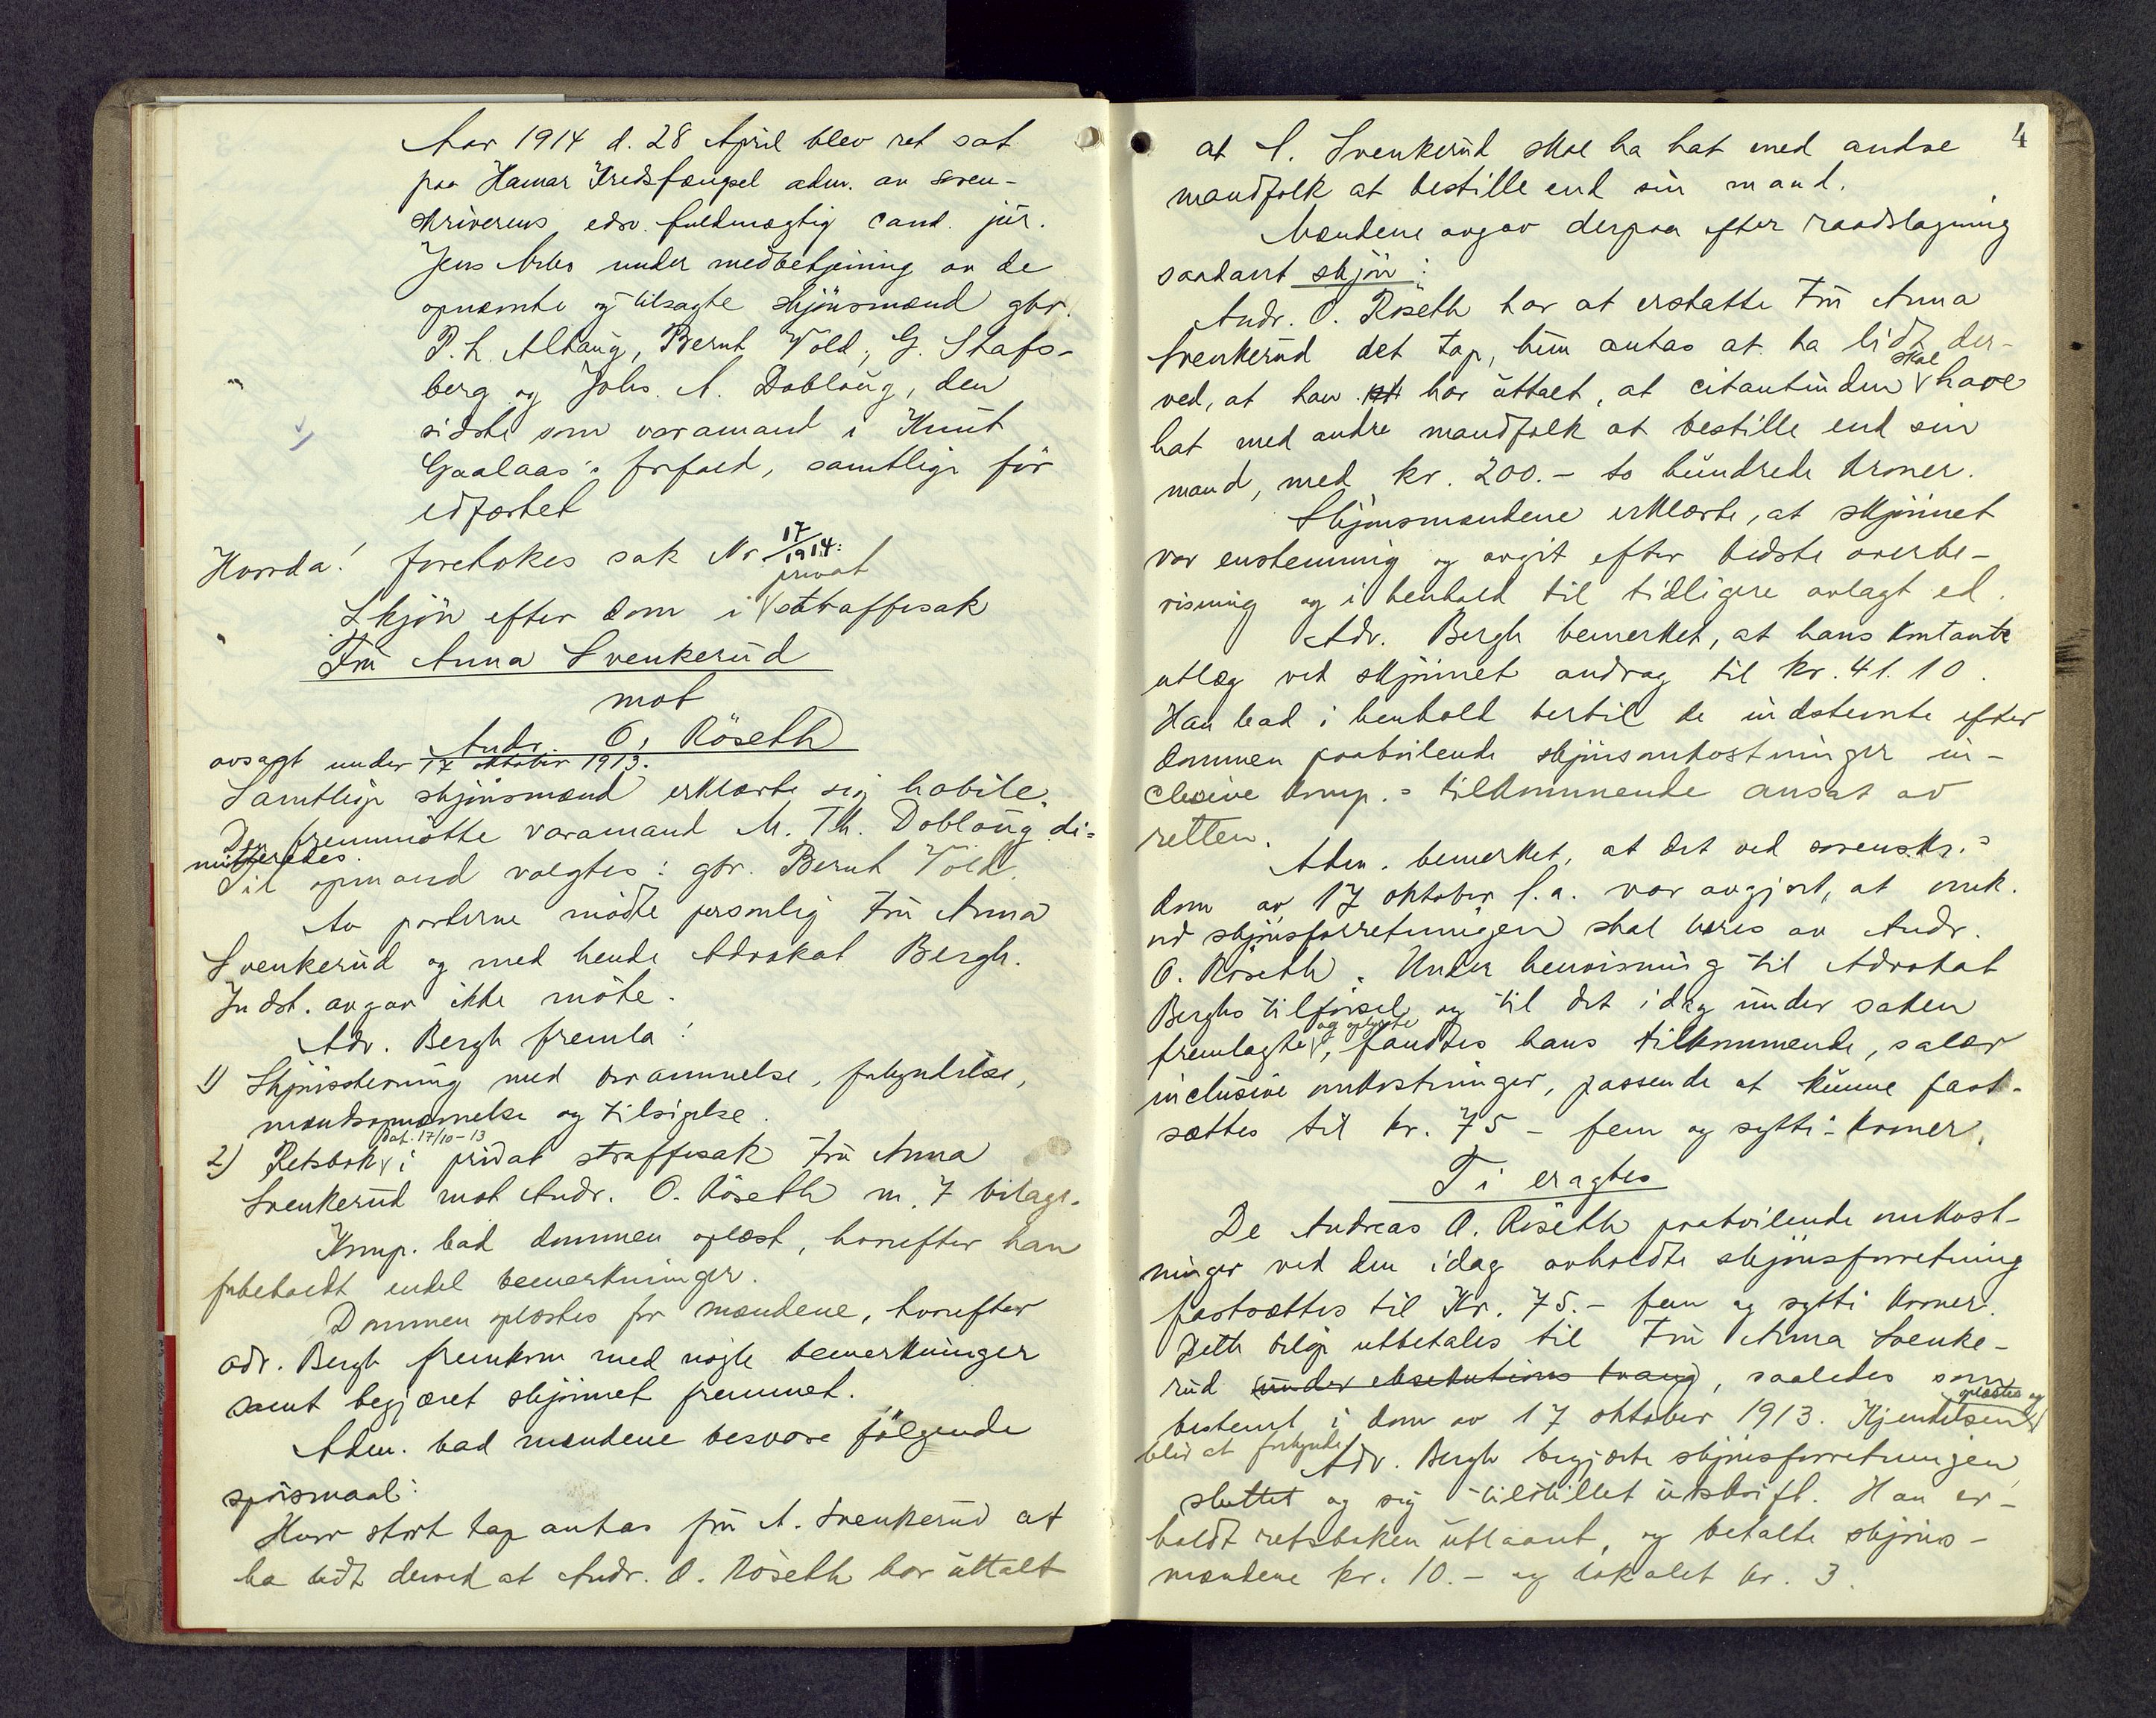 Aar 1914 d. 28 April blev ret sat
paa Hamar Kredsfængsel adm. av soren-
skriverens edsv. fuldmægtig cand. jur.
Jens Arbo under medbetjening av de
opnævnte og tilsagte skjønsmænd gbr.
P. L. Alhaug, Bernt Vold, G. Stafs-
berg og Johs. A. Dobloug, den
sidste som varamand i Knut
Gaalaas's forfald, samtlige før
edfæstet
Hvorda! foretokes sak Nr 17/1914:
privat
Skjøn efter dom i V straffesak
Fru Anna Svenkerud
mot
Andr. O. Röseth
avsagt under 17 oktober 1913.
Samtlige skjønsmænd erklærte sig habile.
Den fremmøtte varamand M. Th. Dobloug di-
mitteredes.
Til opmand valgtes: gbr. Bernt Vold.
Av parterne mødte personlig Fru Anna
Svenkerud og med hende Advokat Bergh.
Indst. avgav ikke møte.
Adv. Bergh fremla:
1) Skjønsstevning med berammelse, forkyndelse,
mandsopnævnelse og tilsigelse.
dat. 17/10-13
2) Retsbok V i privat straffesak Fru Anna
Svenkerud mot Andr. O. Röseth m. 7 bilage.
Komp. bad dommen oplæst, hvorefter han
forbeholdt endel bemerkninger.
Dommen oplæstes for mændene, hvorefter
adv. Bergh fremkom med nogle bemerkninger
samt begjæret skjønnet fremmet.
Adm. bad mændene besvare følgende
spørsmaal:
Hvor stort tap antas fru A. Svenkerud at
ha lidt derved at Andr. O. Röseth har uttalt
4
at A. Svenkerud skal ha hat med andre
mandfolk at bestille end sin mand.
Mændene avgav derpaa efter raadslagning
saadant skjøn:
Andr. O. Röseth har at erstatte Fru Anna
Svenkerud det tap, hun antas at ha lidt der-
skal
ved, at han har uttalt, at citantinden V have
hat med andre mandfolk at bestille end sin
mand, med kr. 200.- to hundrede kroner.
Skjønsmændene erklærte, at skjønnet
var enstemmig og avgit efter bedste overbe-
visning og i henhold til tidligere avlagt ed.
Adv. Bergh bemerket, at hans kontante
utlæg ved skjønnet andrag til kr. 41.10.
Han bad i henhold hertil de indstevnte efter
dommen paahvilende skjønsomkostninger in-
clusive komp.s tilkommende ansat av
retten.
Adm. bemerket, at det ved sorenskr.s
dom av 17 oktober f.a. var avgjort, at omk.
ved skjønsforretningen skal bæres av Andr.
O. Röseth. Under henvisning til Advokat
Berghs tilførsel og til det idag under saken
og oplyste
fremlagte V, fandtes hans tilkommende, salær
inclusive omkostninger, passende at kunne fast-
sættes til kr. 75 - fem og sytti - kroner.
Ti eragtes
De Andreas O. Röseth paahvilende omkost-
ninger ved den idag avholdte skjønsforretning
fastsættes til Kr. 75.- fem og sytti kroner.
Dette beløp utbetales til Fru Anna Svenke-
rud (under eksekutions tvang), saaledes som
oplæstes og
bestemt i dom av 17 oktober 1913. Kjendelsen V
blir at forkynde
Adv. Bergh begjærte skjønsforretningen
sluttet og sig tilstillet utskrift. Han er-
holdt retsboken utlaant, og betalte skjøns-
mændene kr. 10.- og lokalet kr. 3.